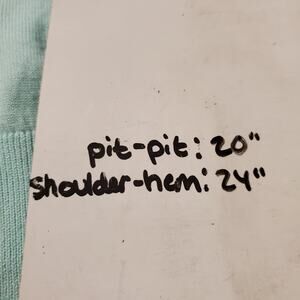 pit-pit: 20"
shoulder-hem: 24"